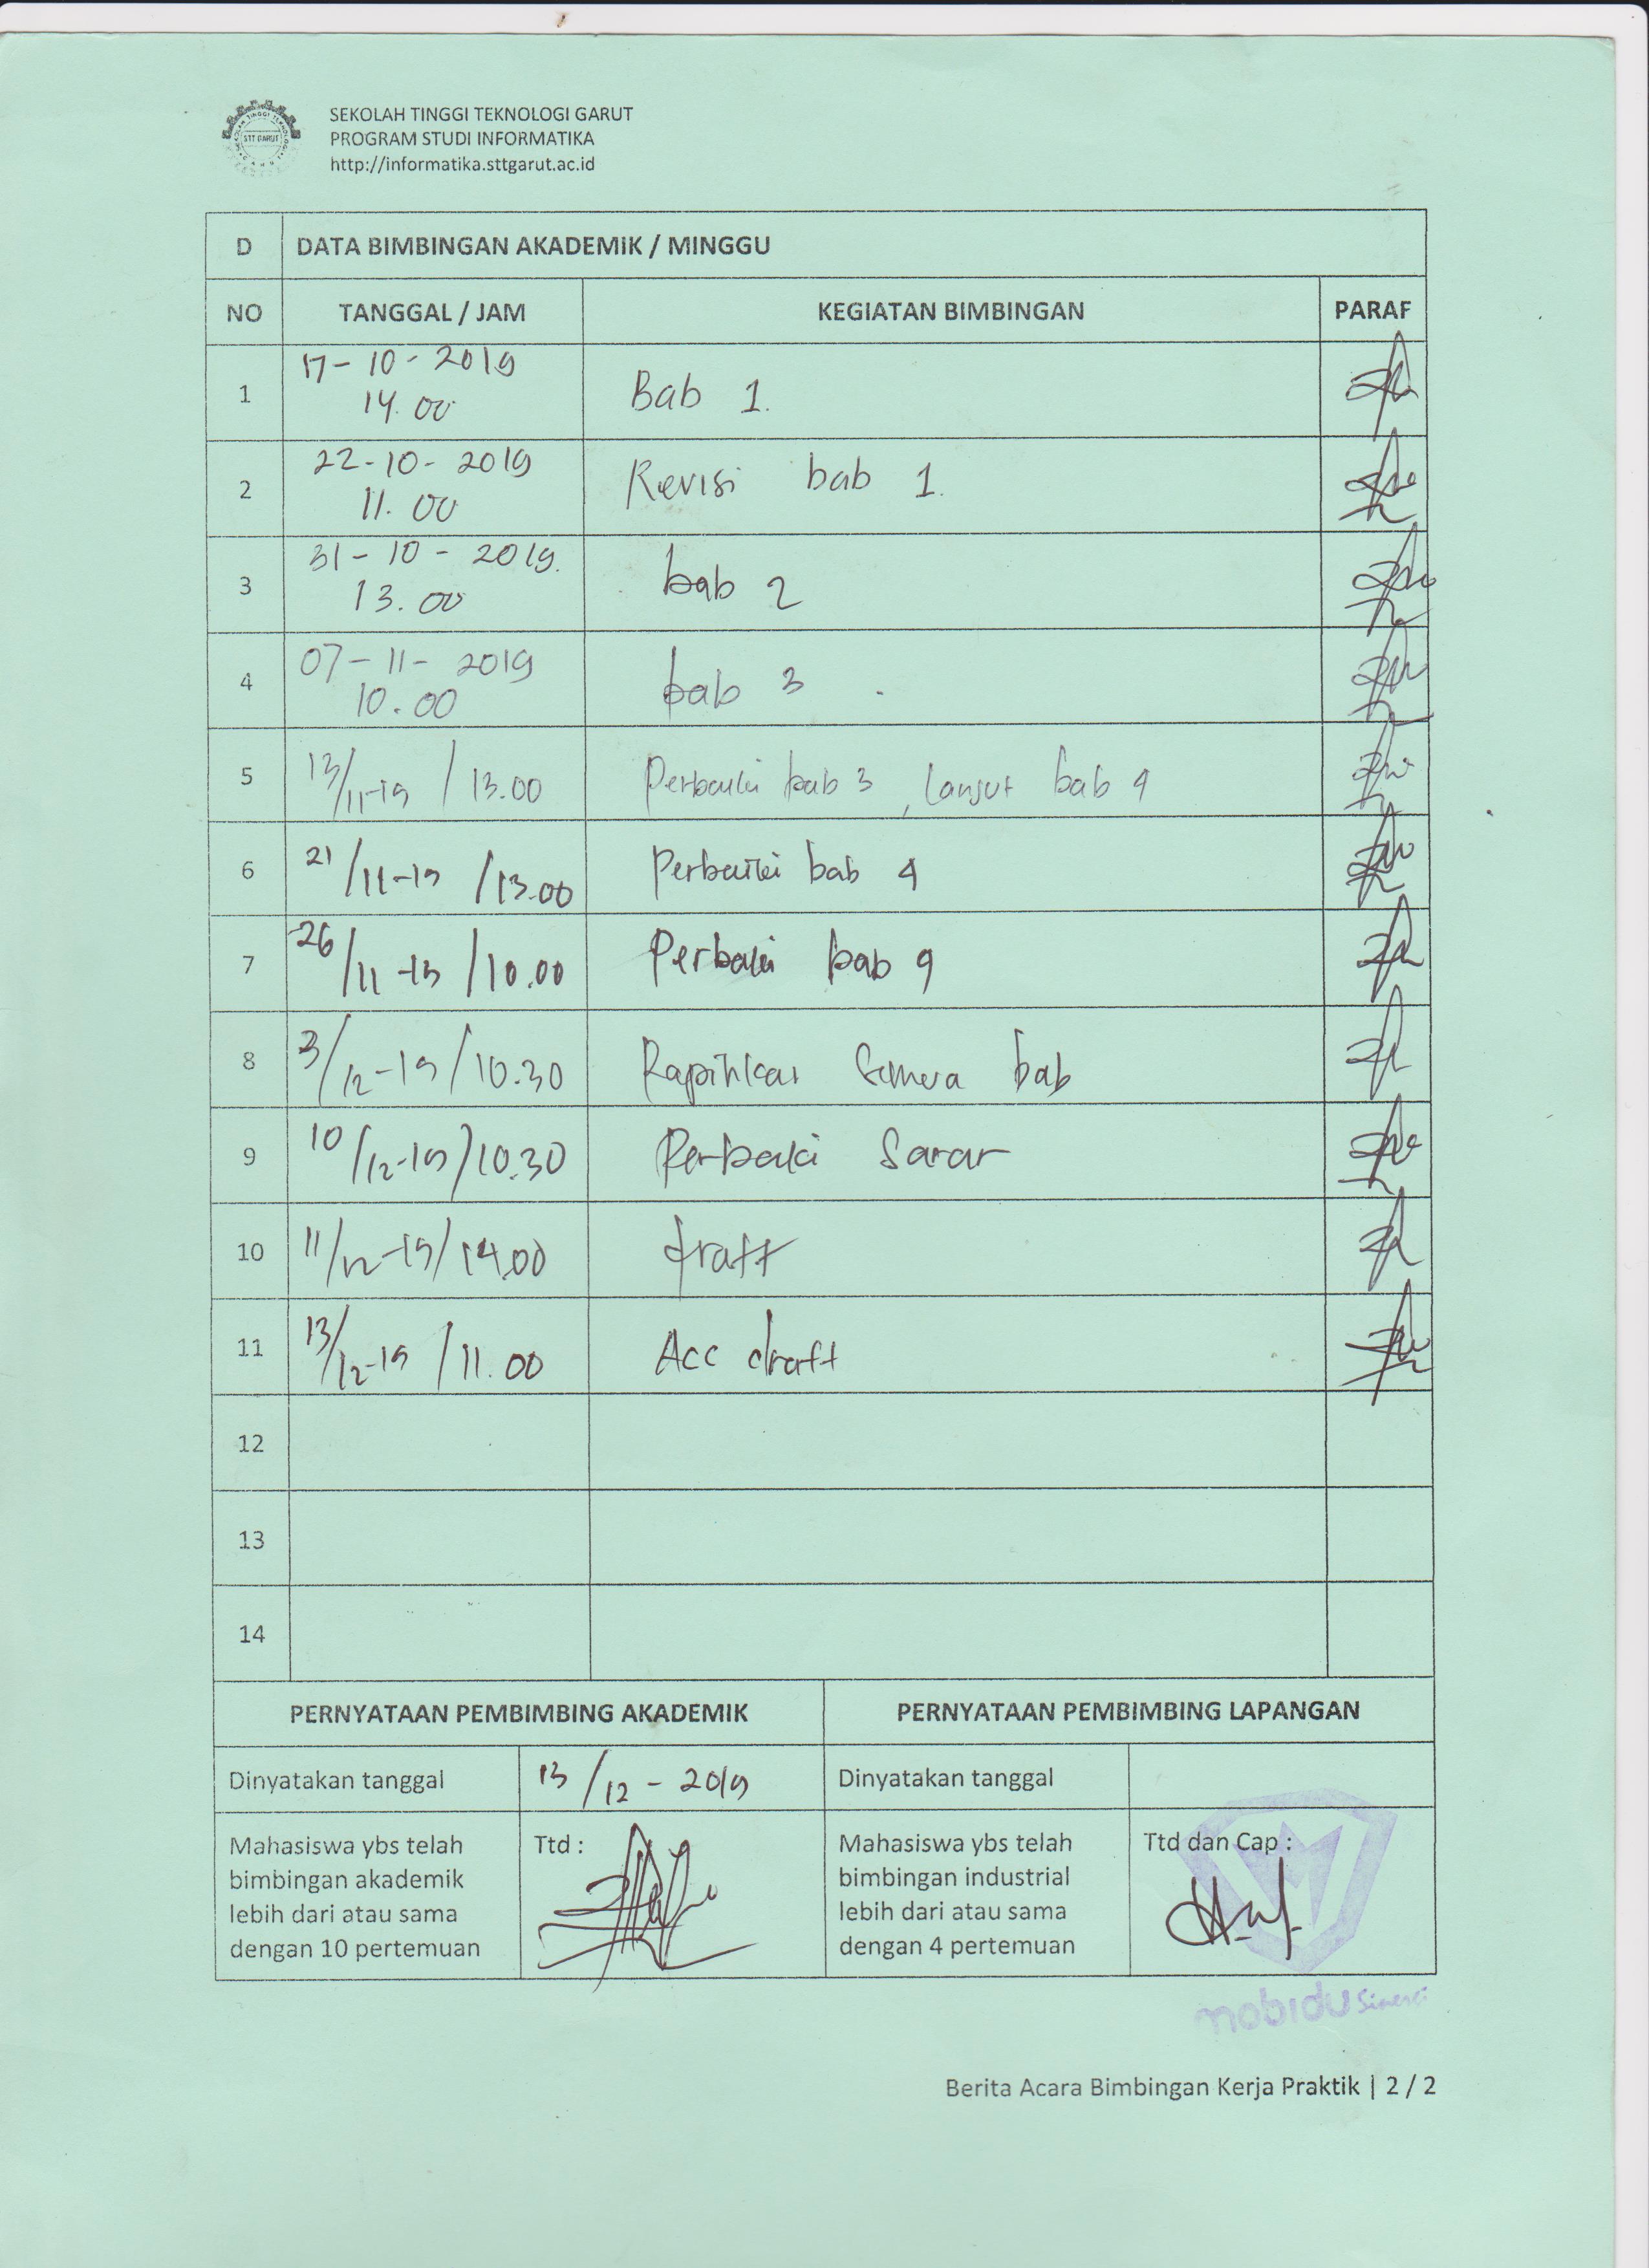 STT GARUT
SEKOLAH TINGGI TEKNOLOGI GARUT
PROGRAM STUDI INFORMATIKA
http://informatika.sttgarut.ac.id
D DATA BIMBINGAN AKADEMIK / MINGGU
NO TANGGAL / JAM KEGIATAN BIMBINGAN PARAF
17-10-2019
1 14.00 Bab 1.
22-10-2019
2 11.00 Revisi bab 1.
31-10-2019.
3 13.00 bab 2
07-11-2019
4 10.00 bab 3
5 13/11-19 / 13.00 Perbaiki bab 3, lanjut bab 4
6 21/11-19 / 13.00 Perbaiki bab 4
7 26/11-19 / 10.00 Perbaiki bab 4
8 3/12-19 / 10.30 Rapihkan semua bab
9 10/12-19 / 10.30 Perbaiki Saran
10 11/12-19 / 14.00 draft
11 13/12-19 / 11.00 Acc draft
12
13
14
PERNYATAAN PEMBIMBING AKADEMIK PERNYATAAN PEMBIMBING LAPANGAN
Dinyatakan tanggal 13/12-2019 Dinyatakan tanggal
Mahasiswa ybs telah Ttd : Mahasiswa ybs telah Ttd dan Cap :
bimbingan akademik bimbingan industrial
lebih dari atau sama lebih dari atau sama
dengan 10 pertemuan dengan 4 pertemuan
mobidu Sinergi
Berita Acara Bimbingan Kerja Praktik | 2 / 2